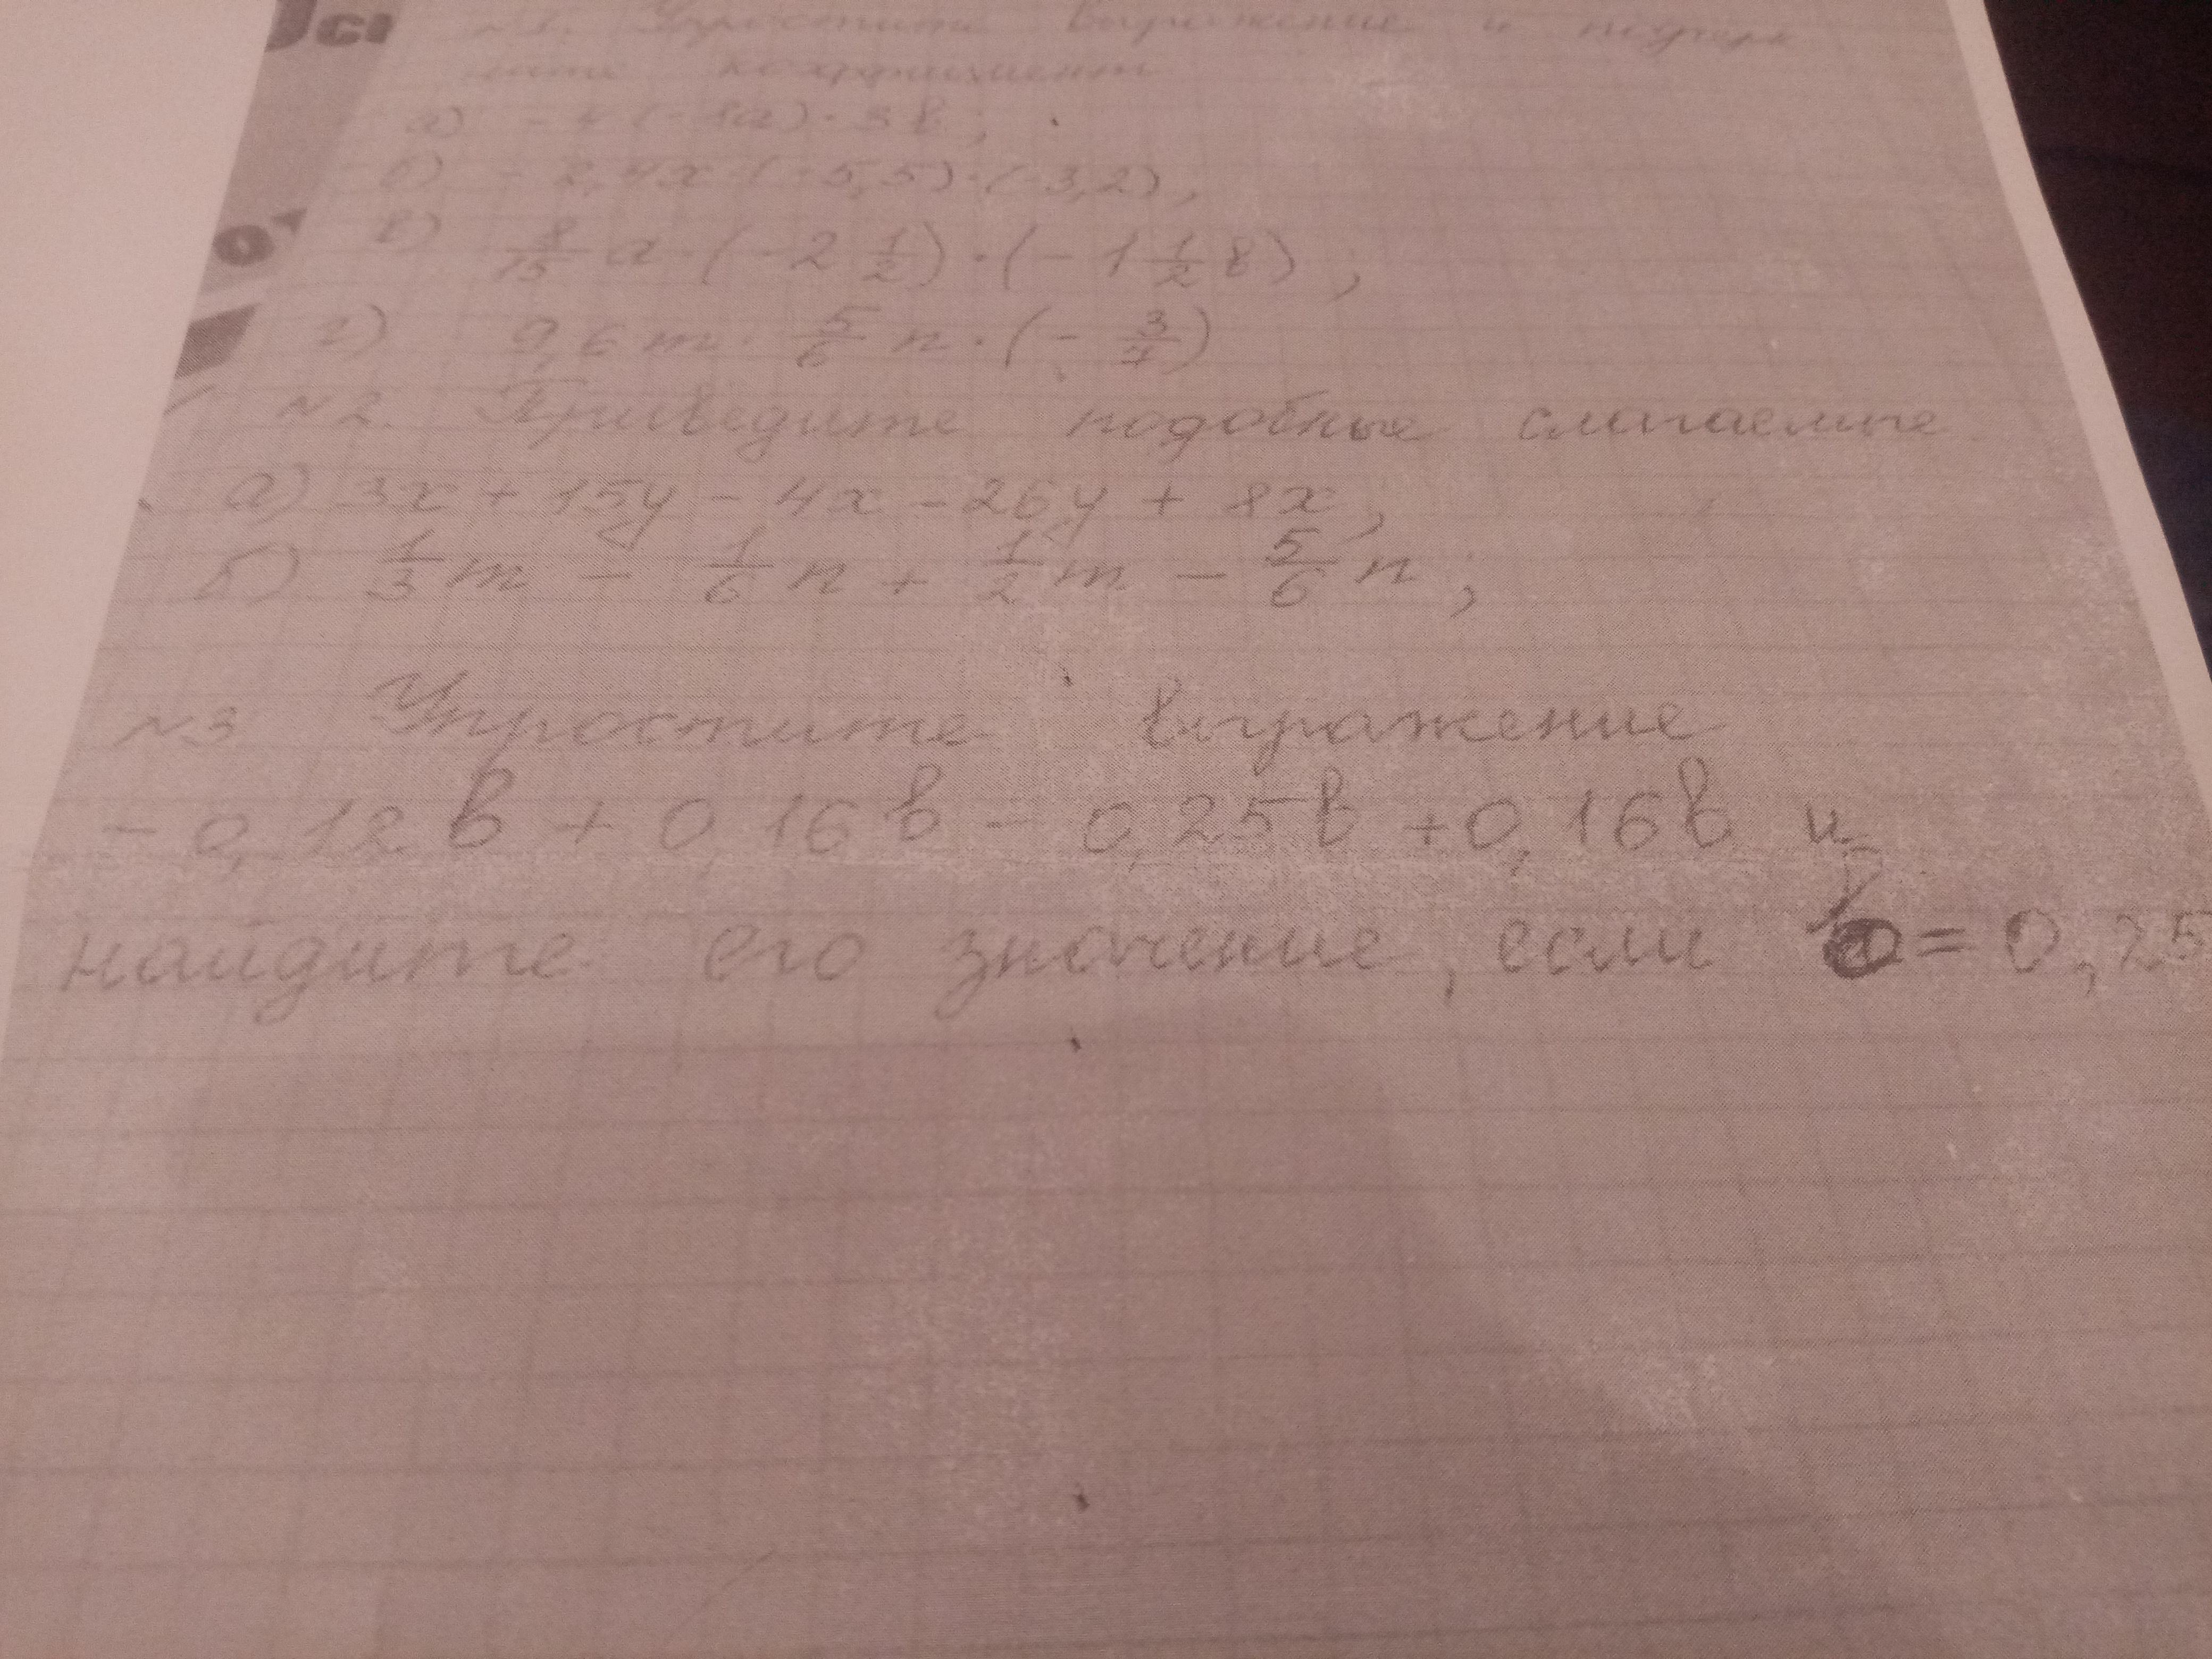 №1. Упростите выражение и подчерк
ните коэффициент
а) (-8а)·3в;
б) -2,4x·(-5,5)·(-3,2),
в) 8/15 а·(-2 1/2)·(-1 1/2 в);
г) 0,6m·5/6 n·(-3/7)
№2. Приведите подобные слагаемые
а) 3x + 15y - 4x - 26y + 8x,
б) 1/3 m - 1/6 n + 1/2 m - 5/6 n;
№3 Упростите выражение
-0,12в + 0,16в - 0,25в + 0,16в и
найдите его значение, если в = 0,25